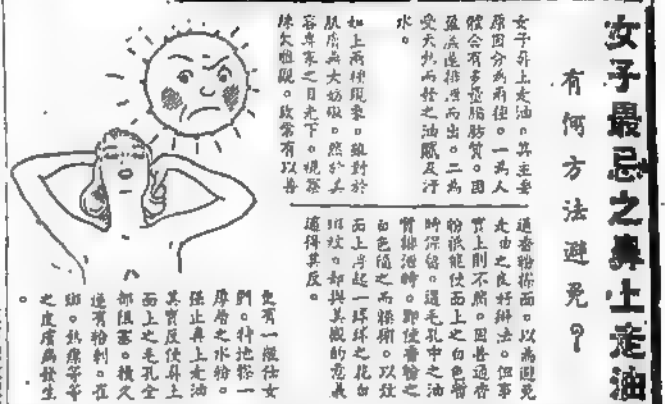 女子最忌之鼻上走油
有何方法避免？
女子鼻上走油。其主要
原因分為兩種。一為人
體含有多量脂肪質。因
盈溢遂排洩而出。二為
受天熱而發之油膩及汗
水。
如上兩種現象。雖對於
肌膚無大妨礙。然於美
容專家之目光下。視察
殊欠雅觀。故常有以普
通香粉搽面。以為避免
走油之良好辦法。但事
實上則不爾。因普通香
粉祇能使面上之白色暫
時保留。遇毛孔中之油
質排洩時。即使香粉之
白色隨之而。以致
面上起一球球之花白
斑紋。却與美觀的意義
適得其反。
更有一般仕女
們。特地搽一
厚層之水粉。
止鼻上走油
其實反使鼻上
面上之毛孔全
部阻塞。積久
遂有粉刺。雀
斑。等等
之皮膚病發生
。